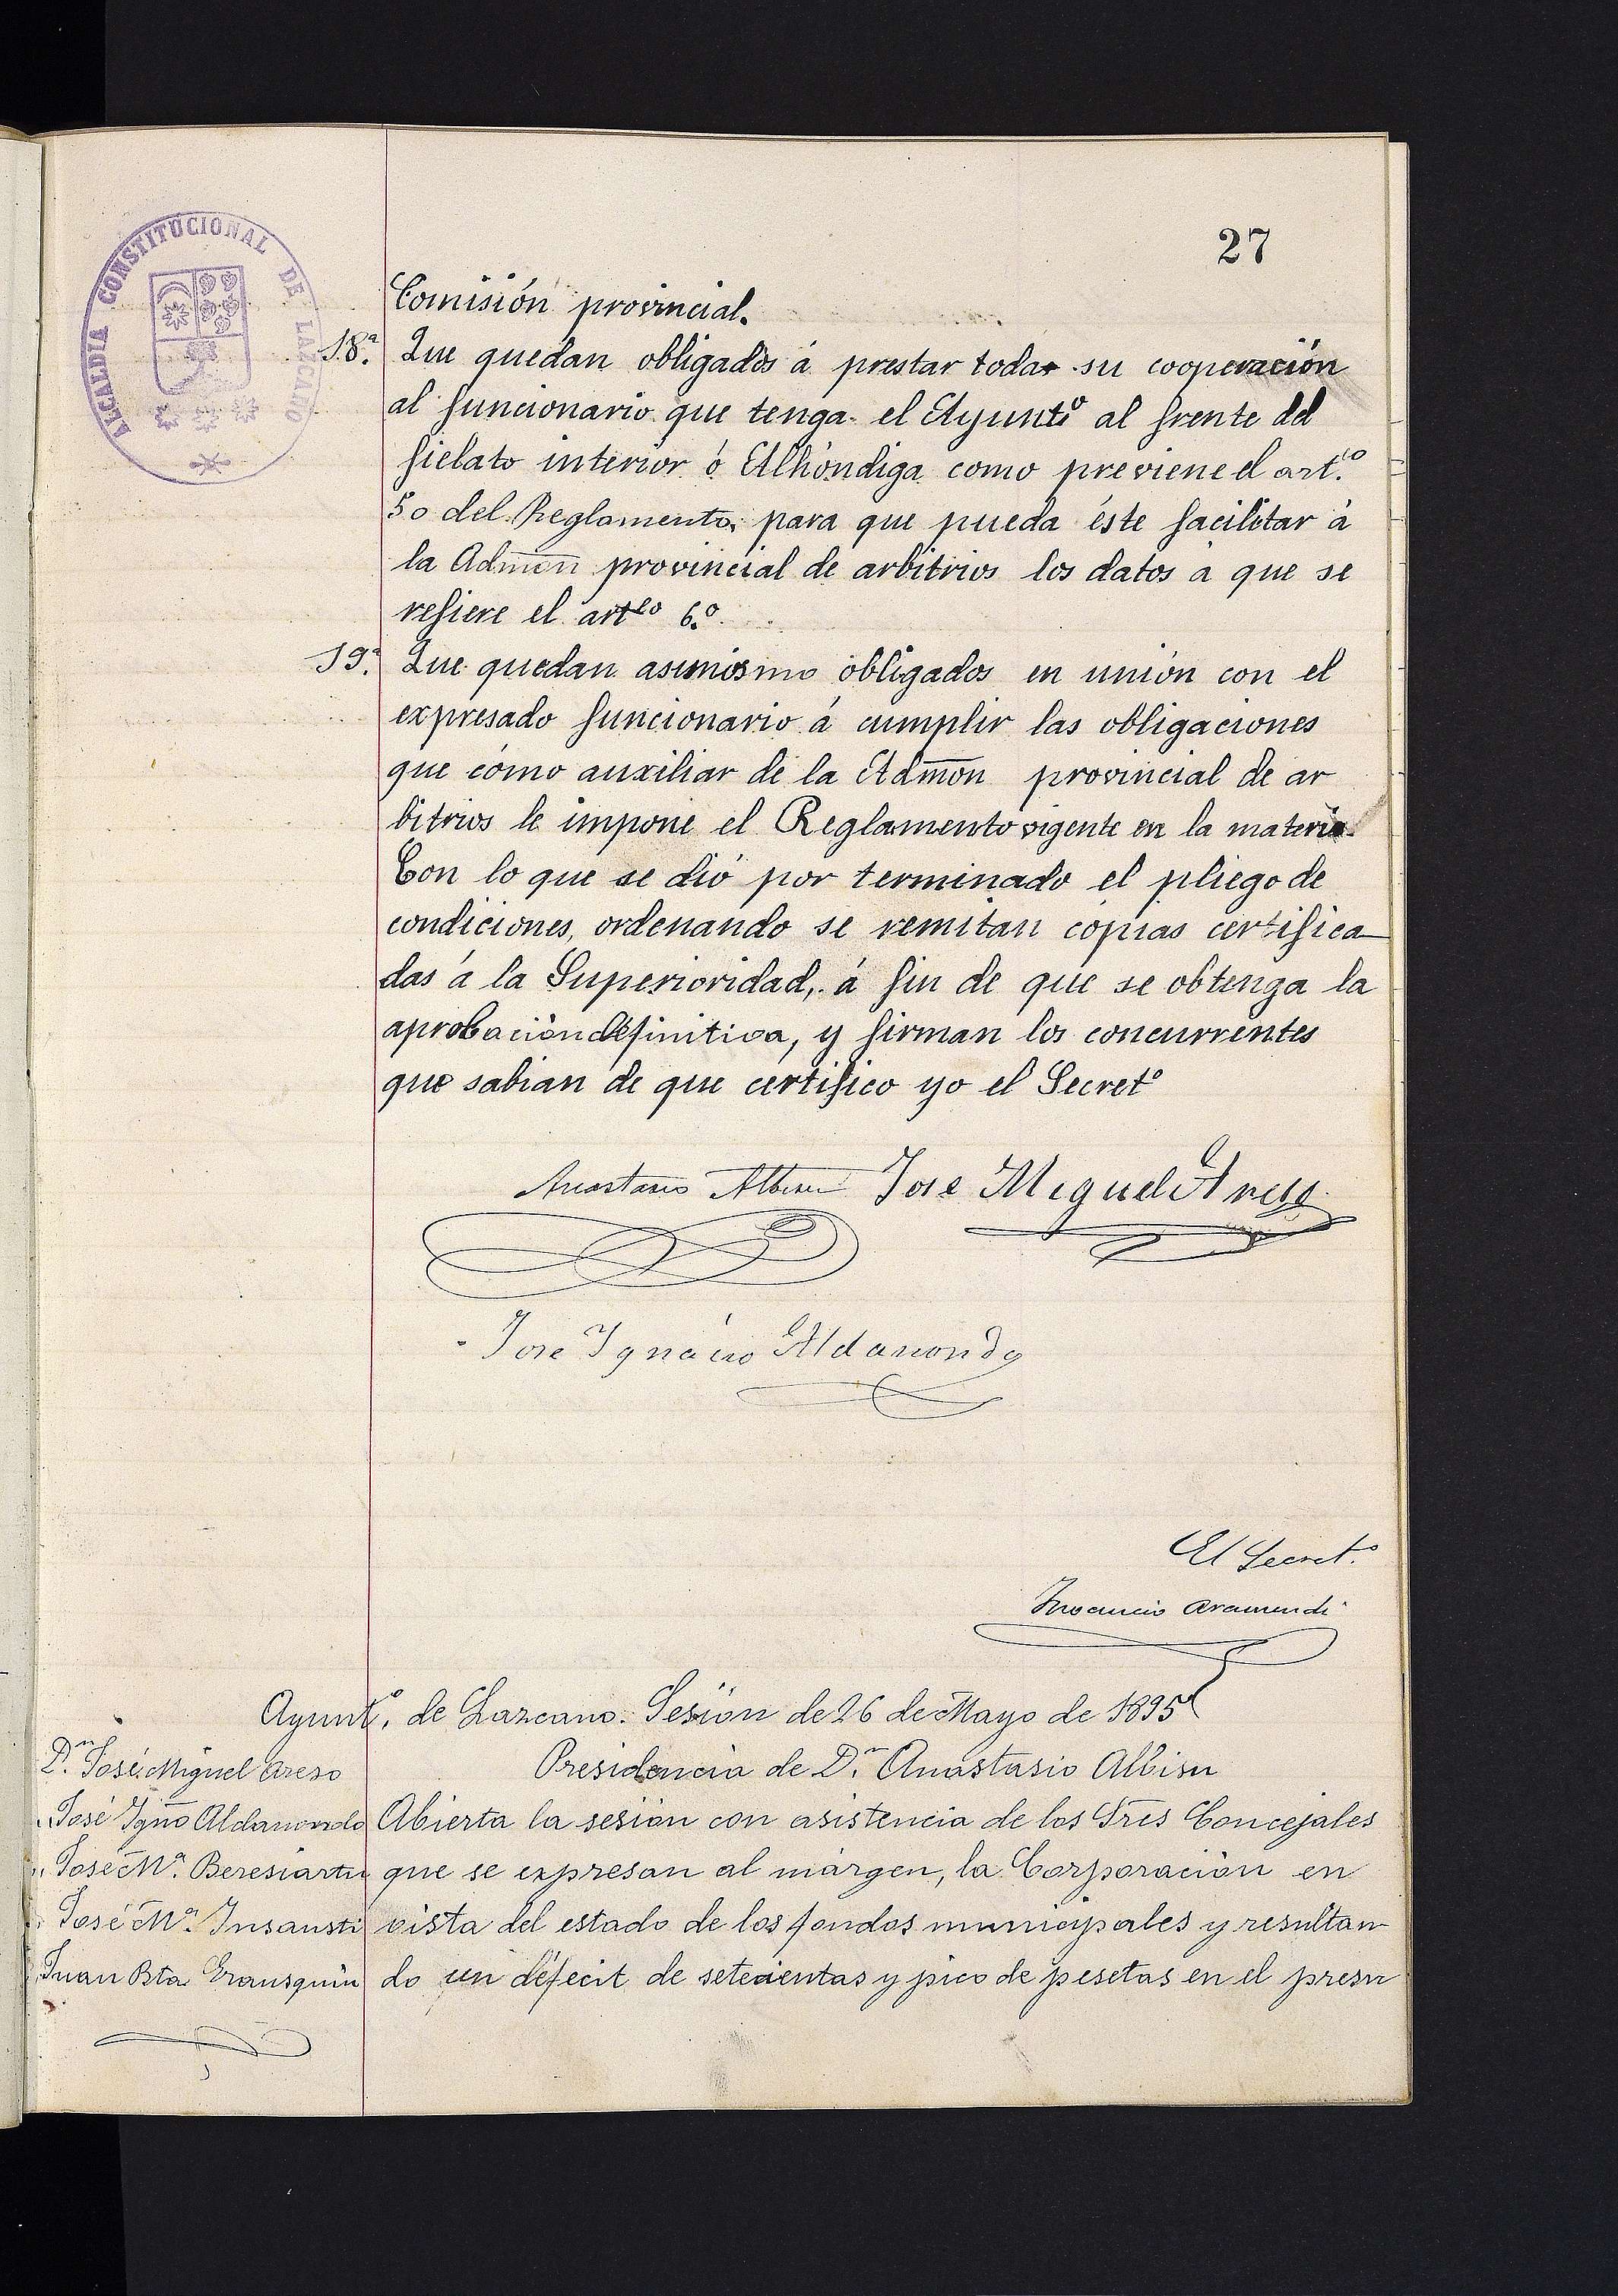 27
ALCALDIA CONSTITUCIONAL DE LAZCANO
Comisión provincial.
18.ª Que quedan obligados á prestar toda su cooperación
al funcionario que tenga el Ayunt.º al frente del
fielato interior ó Alhóndiga como previene el art.ºˡᵒ
50 del Reglamento, para que pueda éste facilitar á
la Admon provincial de arbitrios los datos á que se
refiere el artlo 6.º
19.ª Que quedan asimismo obligados en unión con el
expresado funcionario á cumplir las obligaciones
que cómo auxiliar de la Admon provincial de ar
bitrios le impone el Reglamento vigente en la materia.
Con lo que se dió por terminado el pliego de
condiciones, ordenando se remitan copias certifica
das á la Superioridad, á fin de que se obtenga la
aprobación definitiva, y firman los concurrentes
que sabian de que certifico yo el Secretº
Anastasio Albisu Jose Miguel Areso
Jose Ignacio Aldanondo
El Secret.º
Inocencio Aramendi
Ayunt.º de Lazcano. Sesión de 26 de Mayo de 1895
Presidencia de D.n Anastasio Albisu
D.n José Miguel Areso
" José Igño Aldanondo
" José M.ª Beresiartu
" José M.ª Insausti
" Juan Bta Eransquin
Abierta la sesión con asistencia de los Sres Concejales
que se expresan al márgen, la Corporación en
vista del estado de los fondos municipales y resultan
do un déficit de setecientas y pico de pesetas en el presu